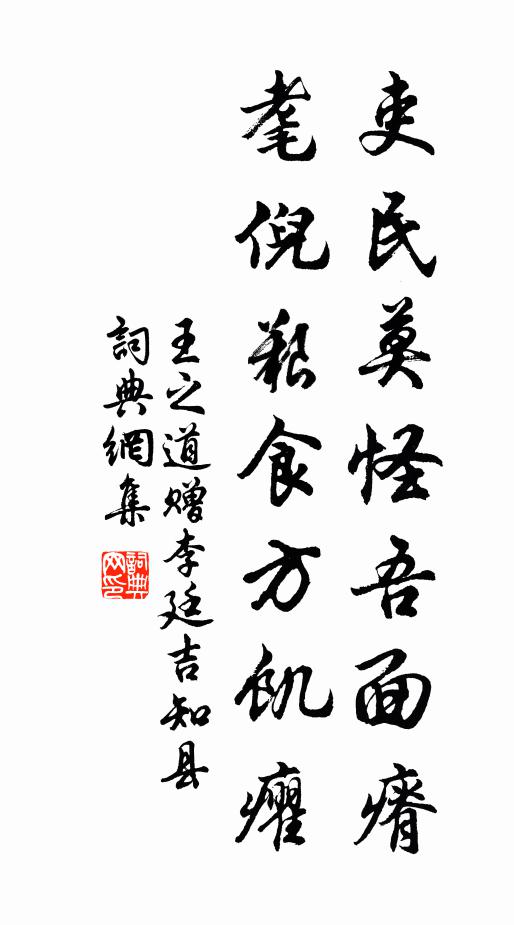 吏民莫怪吾面瘠
耄倪艱食方飢癯
王之道赠李廷吉知县
詞典網集
詞典网印